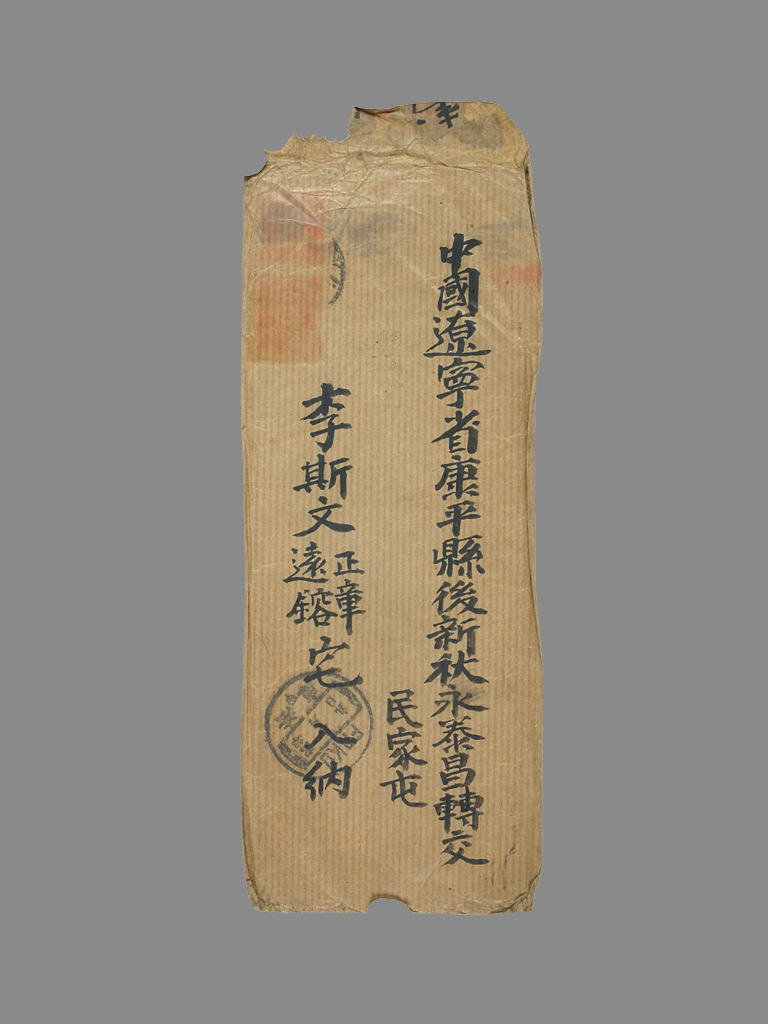 中國遼寧省康平縣後新秋永泰昌轉交
民家屯
李斯文
正章
遠鎔
宅入納